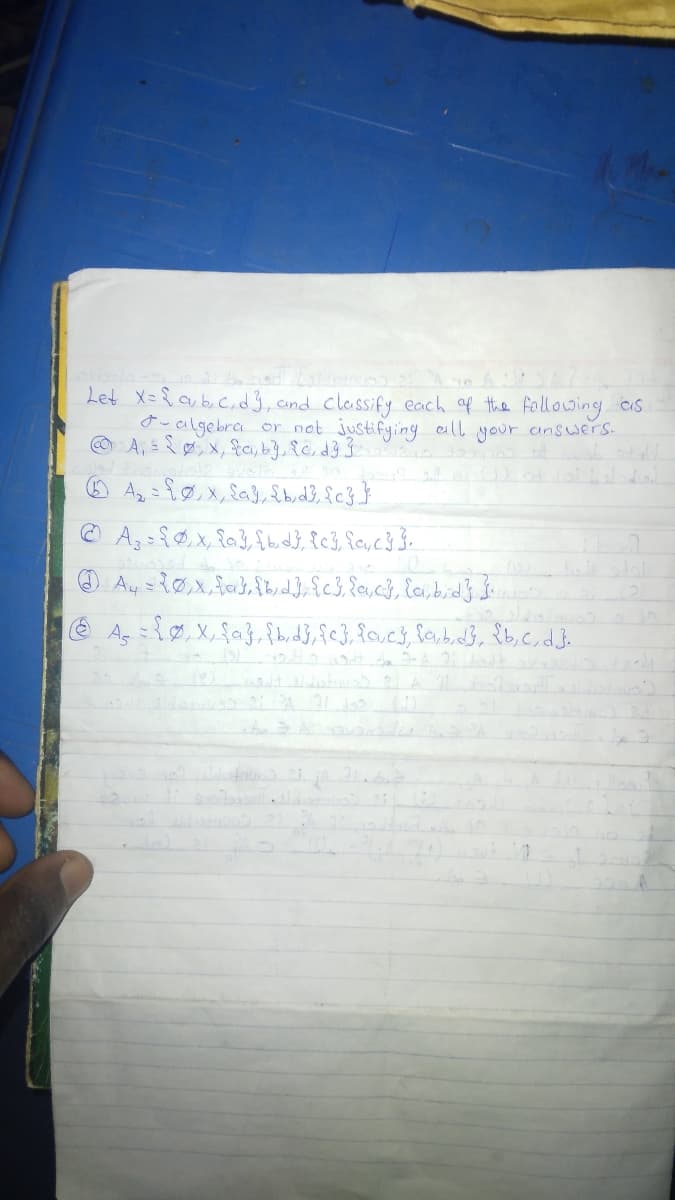 Let X={a,b,c,d}, and classify each of the following as
σ-algebra or not justifying all your answers.
ⓐ A₁ = {∅, X, {a,b}, {c,d}}
ⓑ A₂ = {∅, X, {a}, {b,d}, {c}}
ⓒ A₃ = {∅, X, {a}, {b,d}, {c}, {a,c}}.
ⓓ A₄ = {∅, X, {a}, {b,d}, {c}, {a,c}, {a,b,d}}.
ⓔ A₅ = {∅, X, {a}, {b,d}, {c}, {a,c}, {a,b,d}, {b,c,d}.